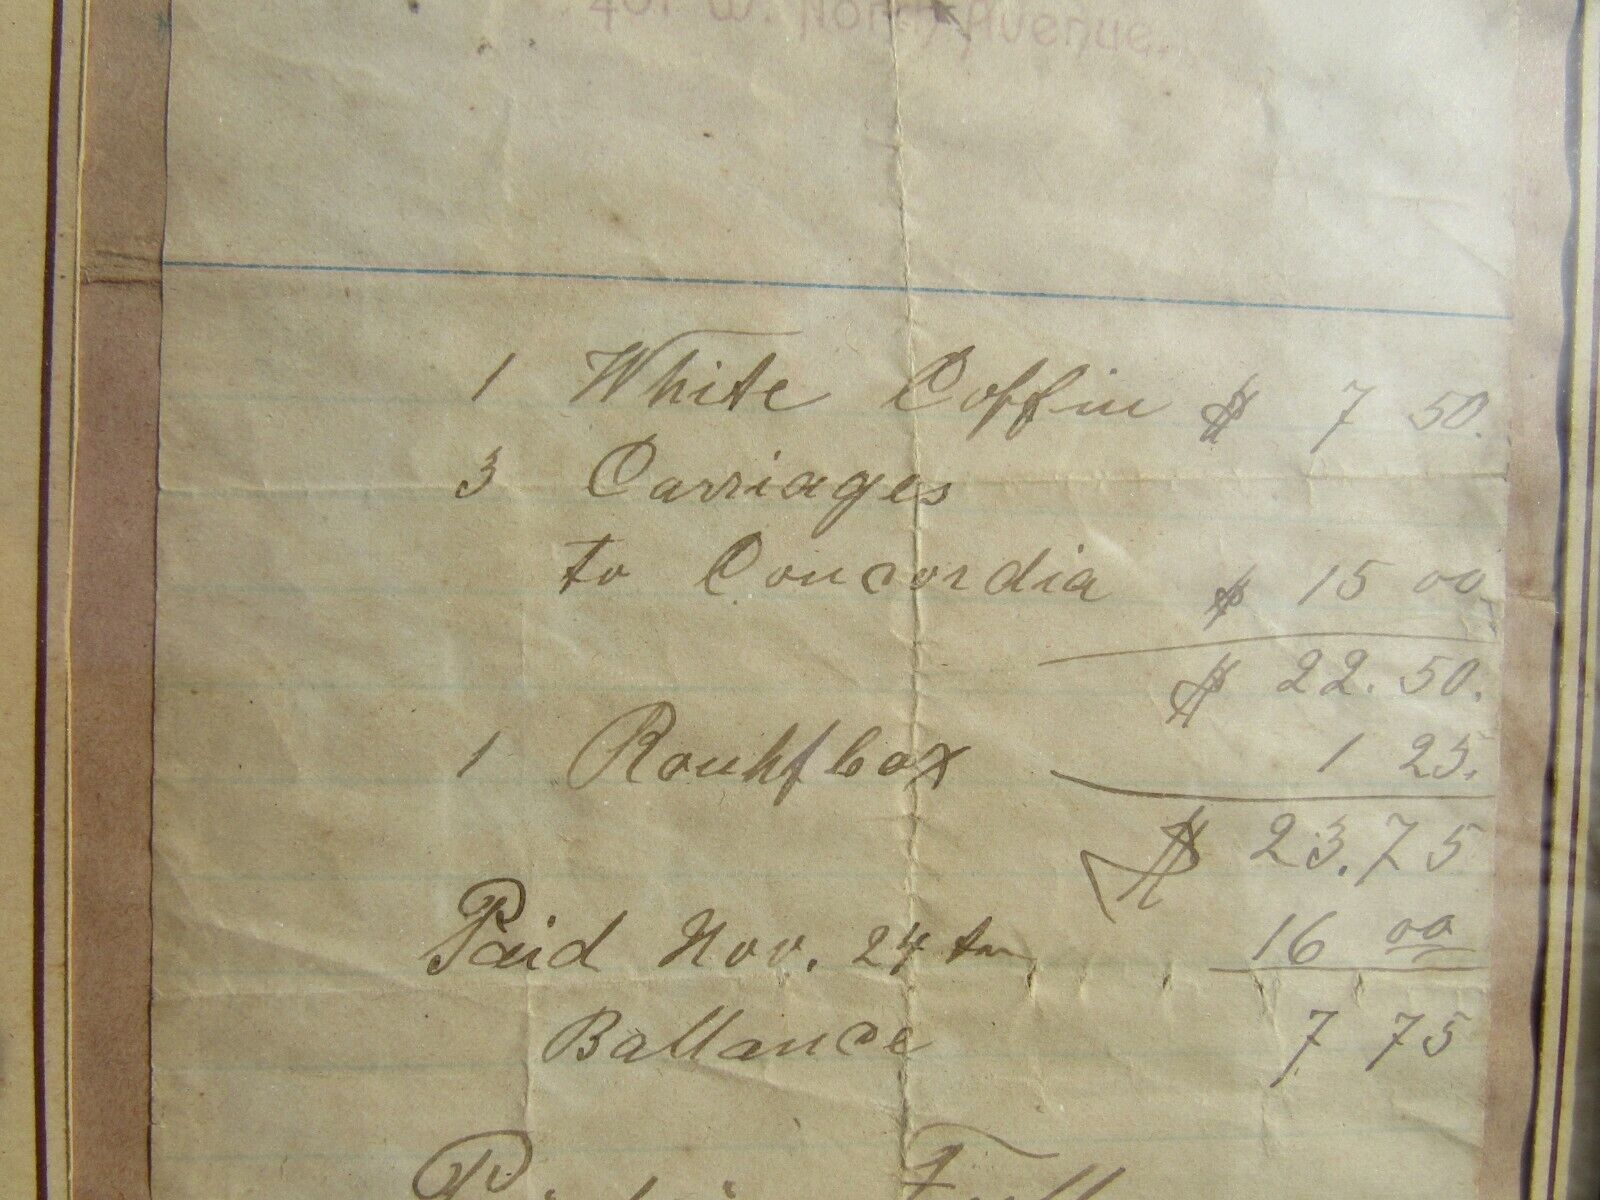 401 W. North Avenue.
1 White Coffin $ 7 50.
3 Carriages
to Concordia $ 15 00
$ 22.50.
1 Rouhfbox 1 25.
$ 23.75
Paid Nov. 24 16 00
Ballance 7 75
Paid in Full